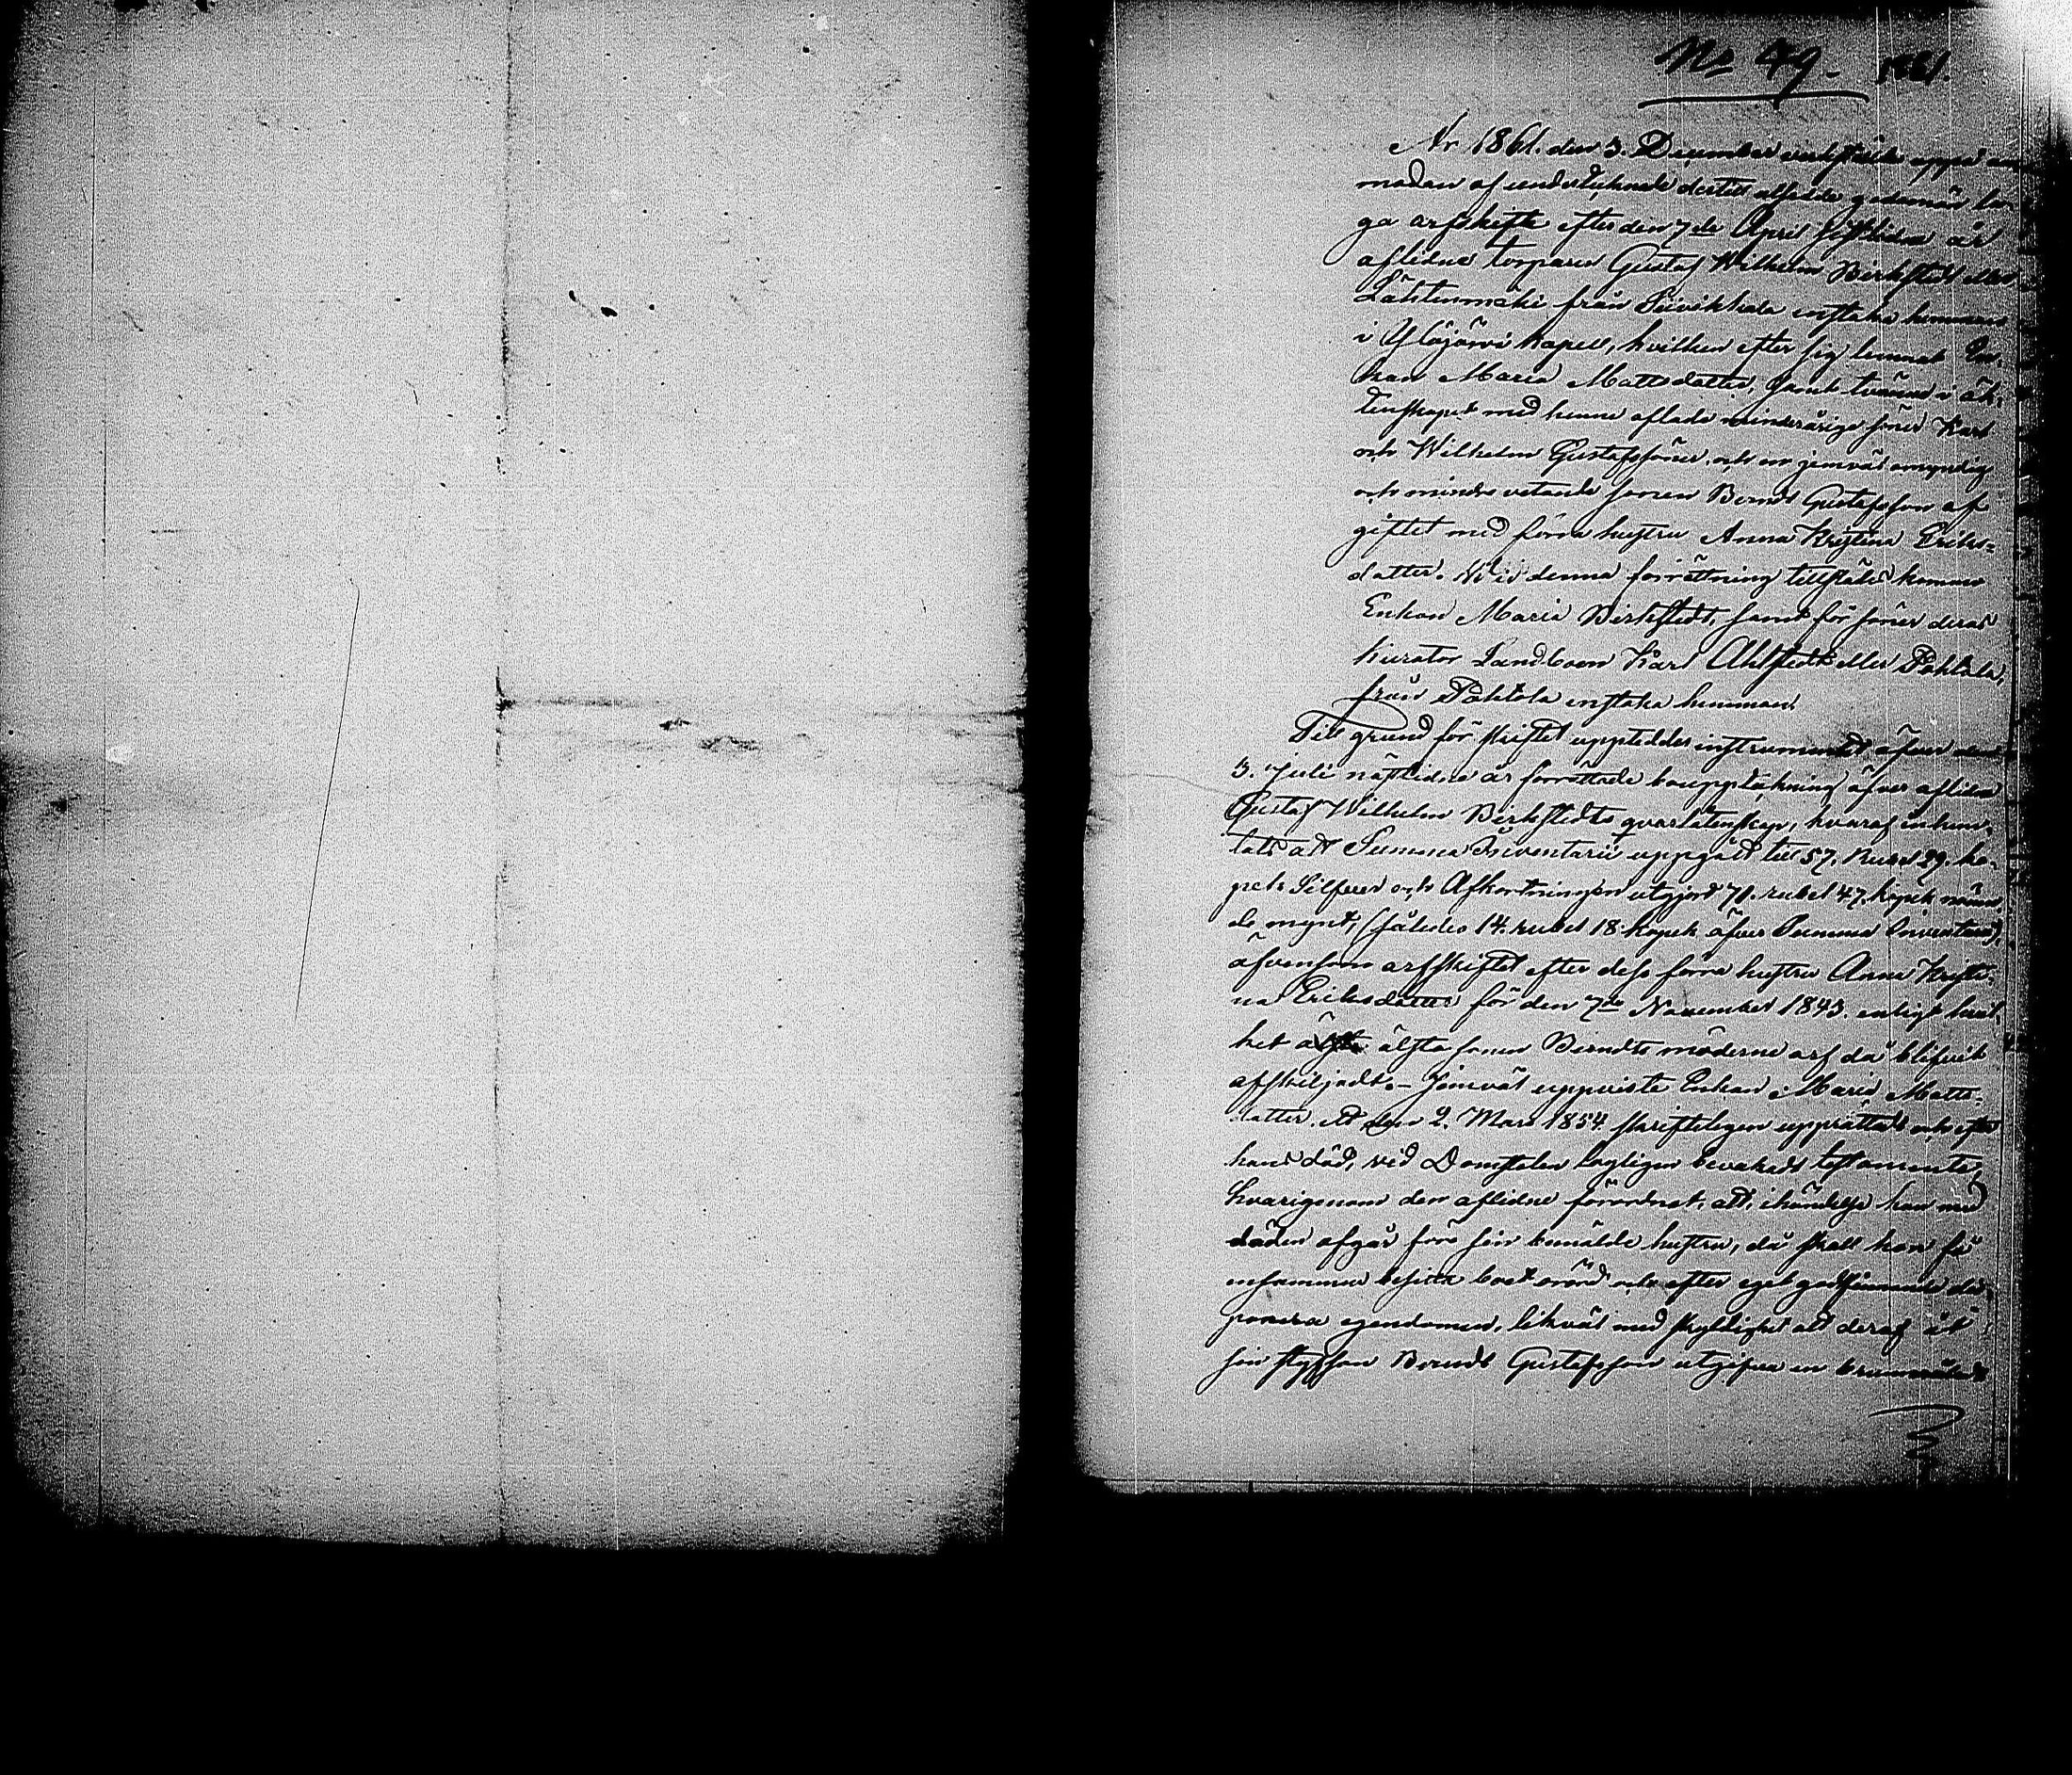 No 49. 1861.
År 1861. den 3. December verkställdes uppå an
modan af undertecknade dertill assolde godemän lag
ga arfskifte efter den 7de April sistlidne år
aflidne torparen Gustaf Wilhelm Birkstedt eller
Lähteenmäki från Siivikkala enstaka hemman
i Ylöjärvi Kapell, hvilken efter sig lemnat En-
kan Maria Mattsdotter, samt tvänne i äk-
tenskapet med henne aflade minderårige söner Karl
och Wilhelm Gustafssöner och en jemväl omyndig
och mindre vetande sonen Berndt Gustafsson af
giftet med förra hustru Anna Kristina Eriks-
dotter. Vid denna förrättning tillstädes kommo
Enkan Maria Birkstedt, samt för söner deras
kurator Landboen Karl Ahlstedt eller Pohtola,
från Pohtola enstaka hemman.
Till grund för skiftet uppteddes instrumentet öfver den
3. Juli nästlidne år förrättade bouppteckning öfver aflidne
Gustaf Wilhelm Birkstedts qvarlåtenskap, hvaraf inhem-
tats att Summa Inventarii uppgått till 57. Rubel 29. ko-
pek Silfver och Afkortningen utgjord 71. rubel 47. kopek nämn-
de mynt, (således 14. rubel 18. kopek öfver Summa Inventarii),
äfvensom arfskiftet efter dess förra hustru Anna Kristi-
na Eriksdotter för den 7de November 1843. enligt hvil-
ket älsta sonen Berndts möderne arf då blifvit
afskiljadt. - Jemväl uppviste Enkan Maria Matts-
dotter ett den 2. Mars 1854 skriftligen upprättadt och efter
hans död, vid Domstolen lagligen bevakadt testamente,
hvarigenom den aflidne förordnat, att, i händelse han med
döden afgår före sin bemälde hustru, då skall hon få
ensammen besitta boet orördt och efter eget godfinnande dis-
ponera egendomen, likväl med skyldighet att deraf åt
sin styfson Berndt Gustafsson utgifva en brunmålad